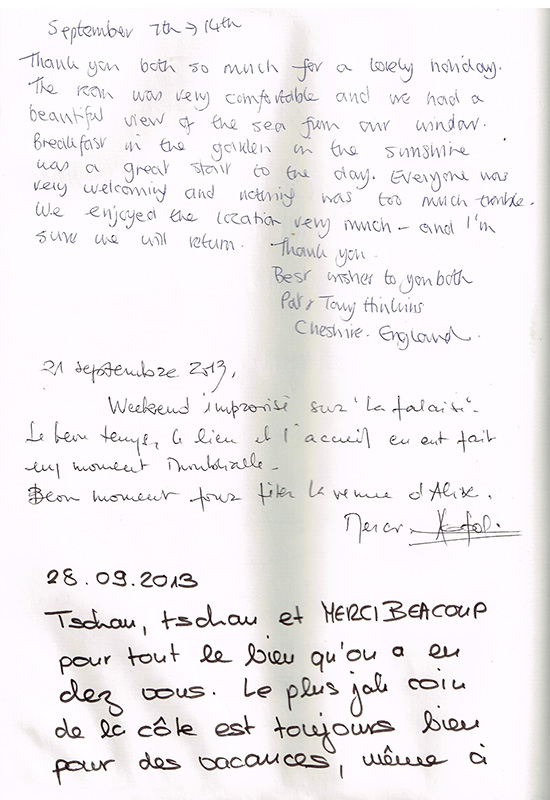 September 7th → 14th
Thank you both so much for a lovely holiday.
The room was very comfortable and we had a
beautiful view of the sea from our window.
Breakfast in the garden in the sunshine
was a great start to the day. Everyone was
very welcoming and nothing was too much trouble.
We enjoyed the location very much – and I'm
sure we will return. Thank you.
Best wishes to you both
Pat & Tony
Cheshire. England.
21 septembre 2013,
Weekend improvisé sur "la falaise".
Le beau temps, le lieu et l'accueil en ont fait
un moment
Bon moment pour fêter la venue d'Alix.
Merci
28.09.2013
Tschau, tschau et MERCI BEACOUP
pour tout le bien qu'on a eu
dez vous. Le plus joli coin
de la côte est toujours bien
pour des vacances, même à